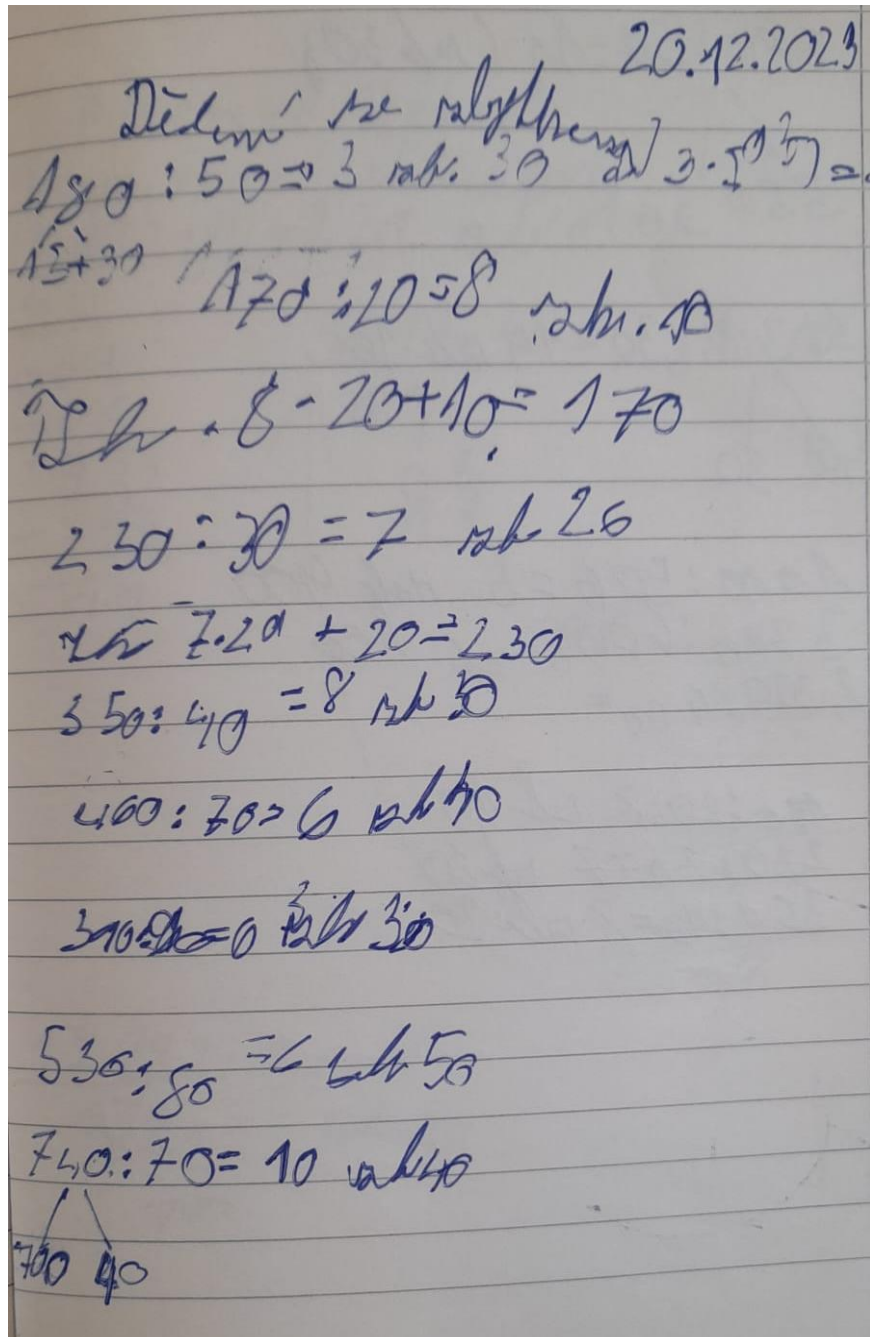 20.12.2023
Dělení se zbytkem
180 : 50 = 3 zb. 30
15 + 30
170 : 20 = 8 zb. 10
Zk. 8 · 20 + 10 = 170
230 : 30 = 7 zb 20
zk 7 · 20 + 20 = 230
350 : 40 = 8 zb 30
460 : 70 = 6 zb 40
530 : 80 = 6 zb 50
740 : 70 = 10 zb 40
700 40